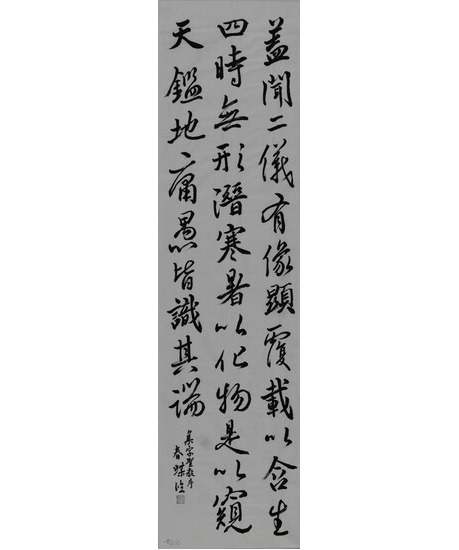 蓋聞二儀有像顯覆載以含生
四時無形潛寒暑以化物是以窺
天鑑地庸愚皆識其端
集字聖教序
春蝶臨